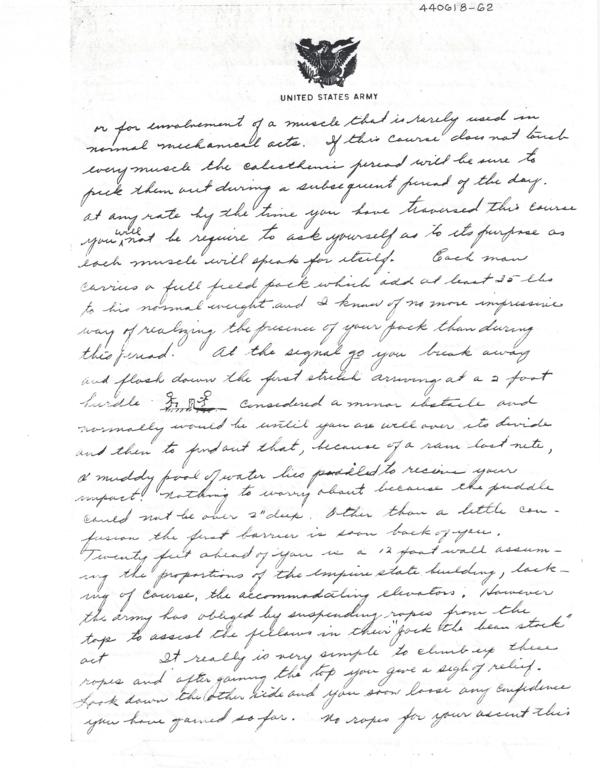 440618-62
UNITED STATES ARMY
or for involvement of a muscle that is rarely used in
normal mechanical acts. If this course does not touch
every muscle the calesthenic peread will be sure to
pick them out during a subsequent period of the day.
At any rate by the time you have traversed this course
you will not be require to ask yourself as to its purpose as
each muscle will speak for itself. Each man
carries a full field pack which add at least 25 lbs
to his normal weight and I know of no more impressive
way of realizing the presence of your pack than during
this period. At the signal go you break away
and flash down the first stretch arriving at a 2 foot
hurdle considered a minor obstacle and
normally would be until you are well over its divide
and then to find out that, because of a rain last nite,
a muddy pool of water lies puddled to receive your
impact. Nothing to worry about because the puddle
could not be over 2" deep. Other than a little con-
fusion the first barrier is soon back of you.
Twenty feet ahead of you is a 12 foot wall assum-
ing the proportions of the empire state building, lack-
ing of course, the accommodating elevators. However
the army has obliged by suspending ropes from the
top to assist the fellows in their "jack the bean stock"
act It really is very simple to climb up these
ropes and after gaining the top you give a sigh of relief.
Look down the other side and you soon loose any confidence
you have gained so far. No ropes for your ascent this